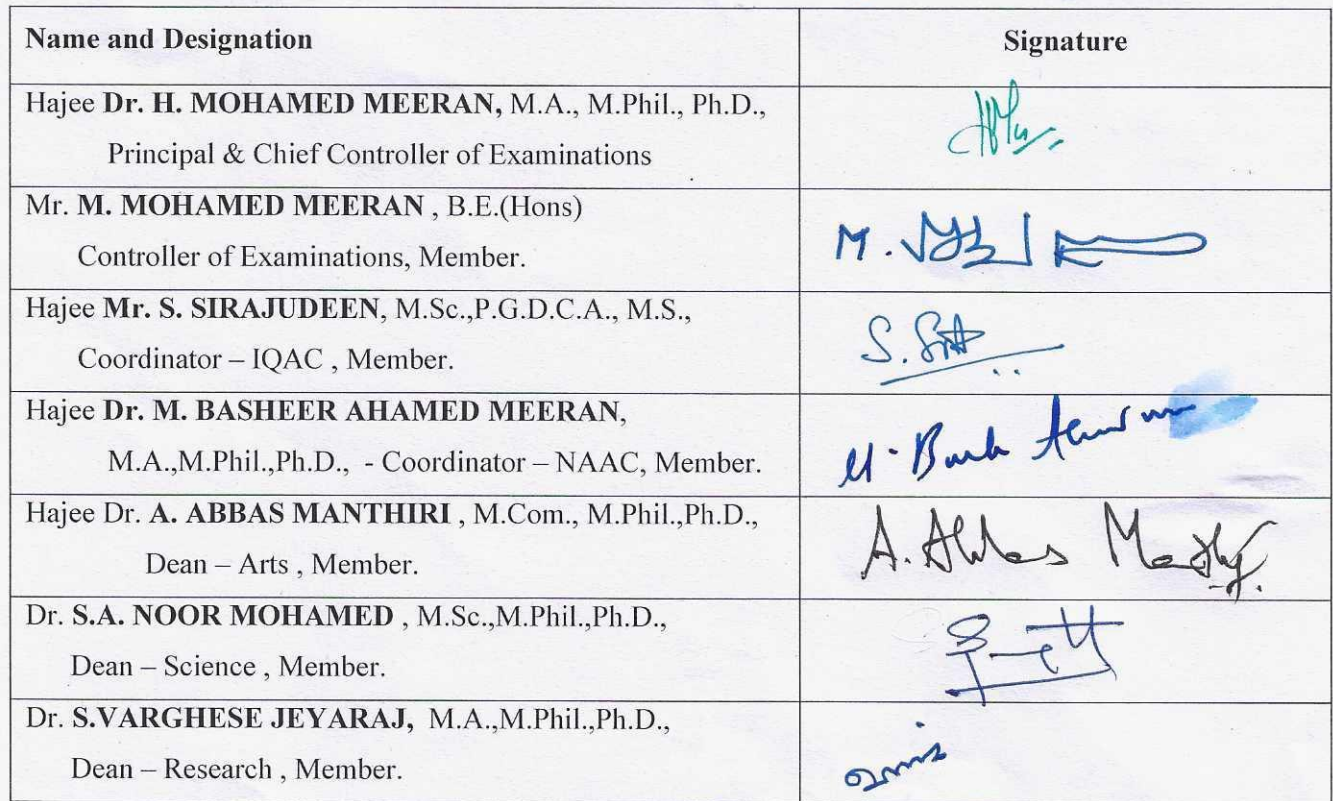 Name and Designation
Signature
Hajee Dr. H. MOHAMED MEERAN, M.A., M.Phil., Ph.D.,
Principal & Chief Controller of Examinations
Mr. M. MOHAMED MEERAN , B.E.(Hons)
Controller of Examinations, Member.
M.
Hajee Mr. S. SIRAJUDEEN, M.Sc.,P.G.D.C.A., M.S.,
Coordinator – IQAC , Member.
S.
Hajee Dr. M. BASHEER AHAMED MEERAN,
M.A.,M.Phil.,Ph.D., - Coordinator – NAAC, Member.
Hajee Dr. A. ABBAS MANTHIRI , M.Com., M.Phil.,Ph.D.,
Dean – Arts , Member.
A. Abbas
Dr. S.A. NOOR MOHAMED , M.Sc.,M.Phil.,Ph.D.,
Dean – Science , Member.
Dr. S.VARGHESE JEYARAJ, M.A.,M.Phil.,Ph.D.,
Dean – Research , Member.